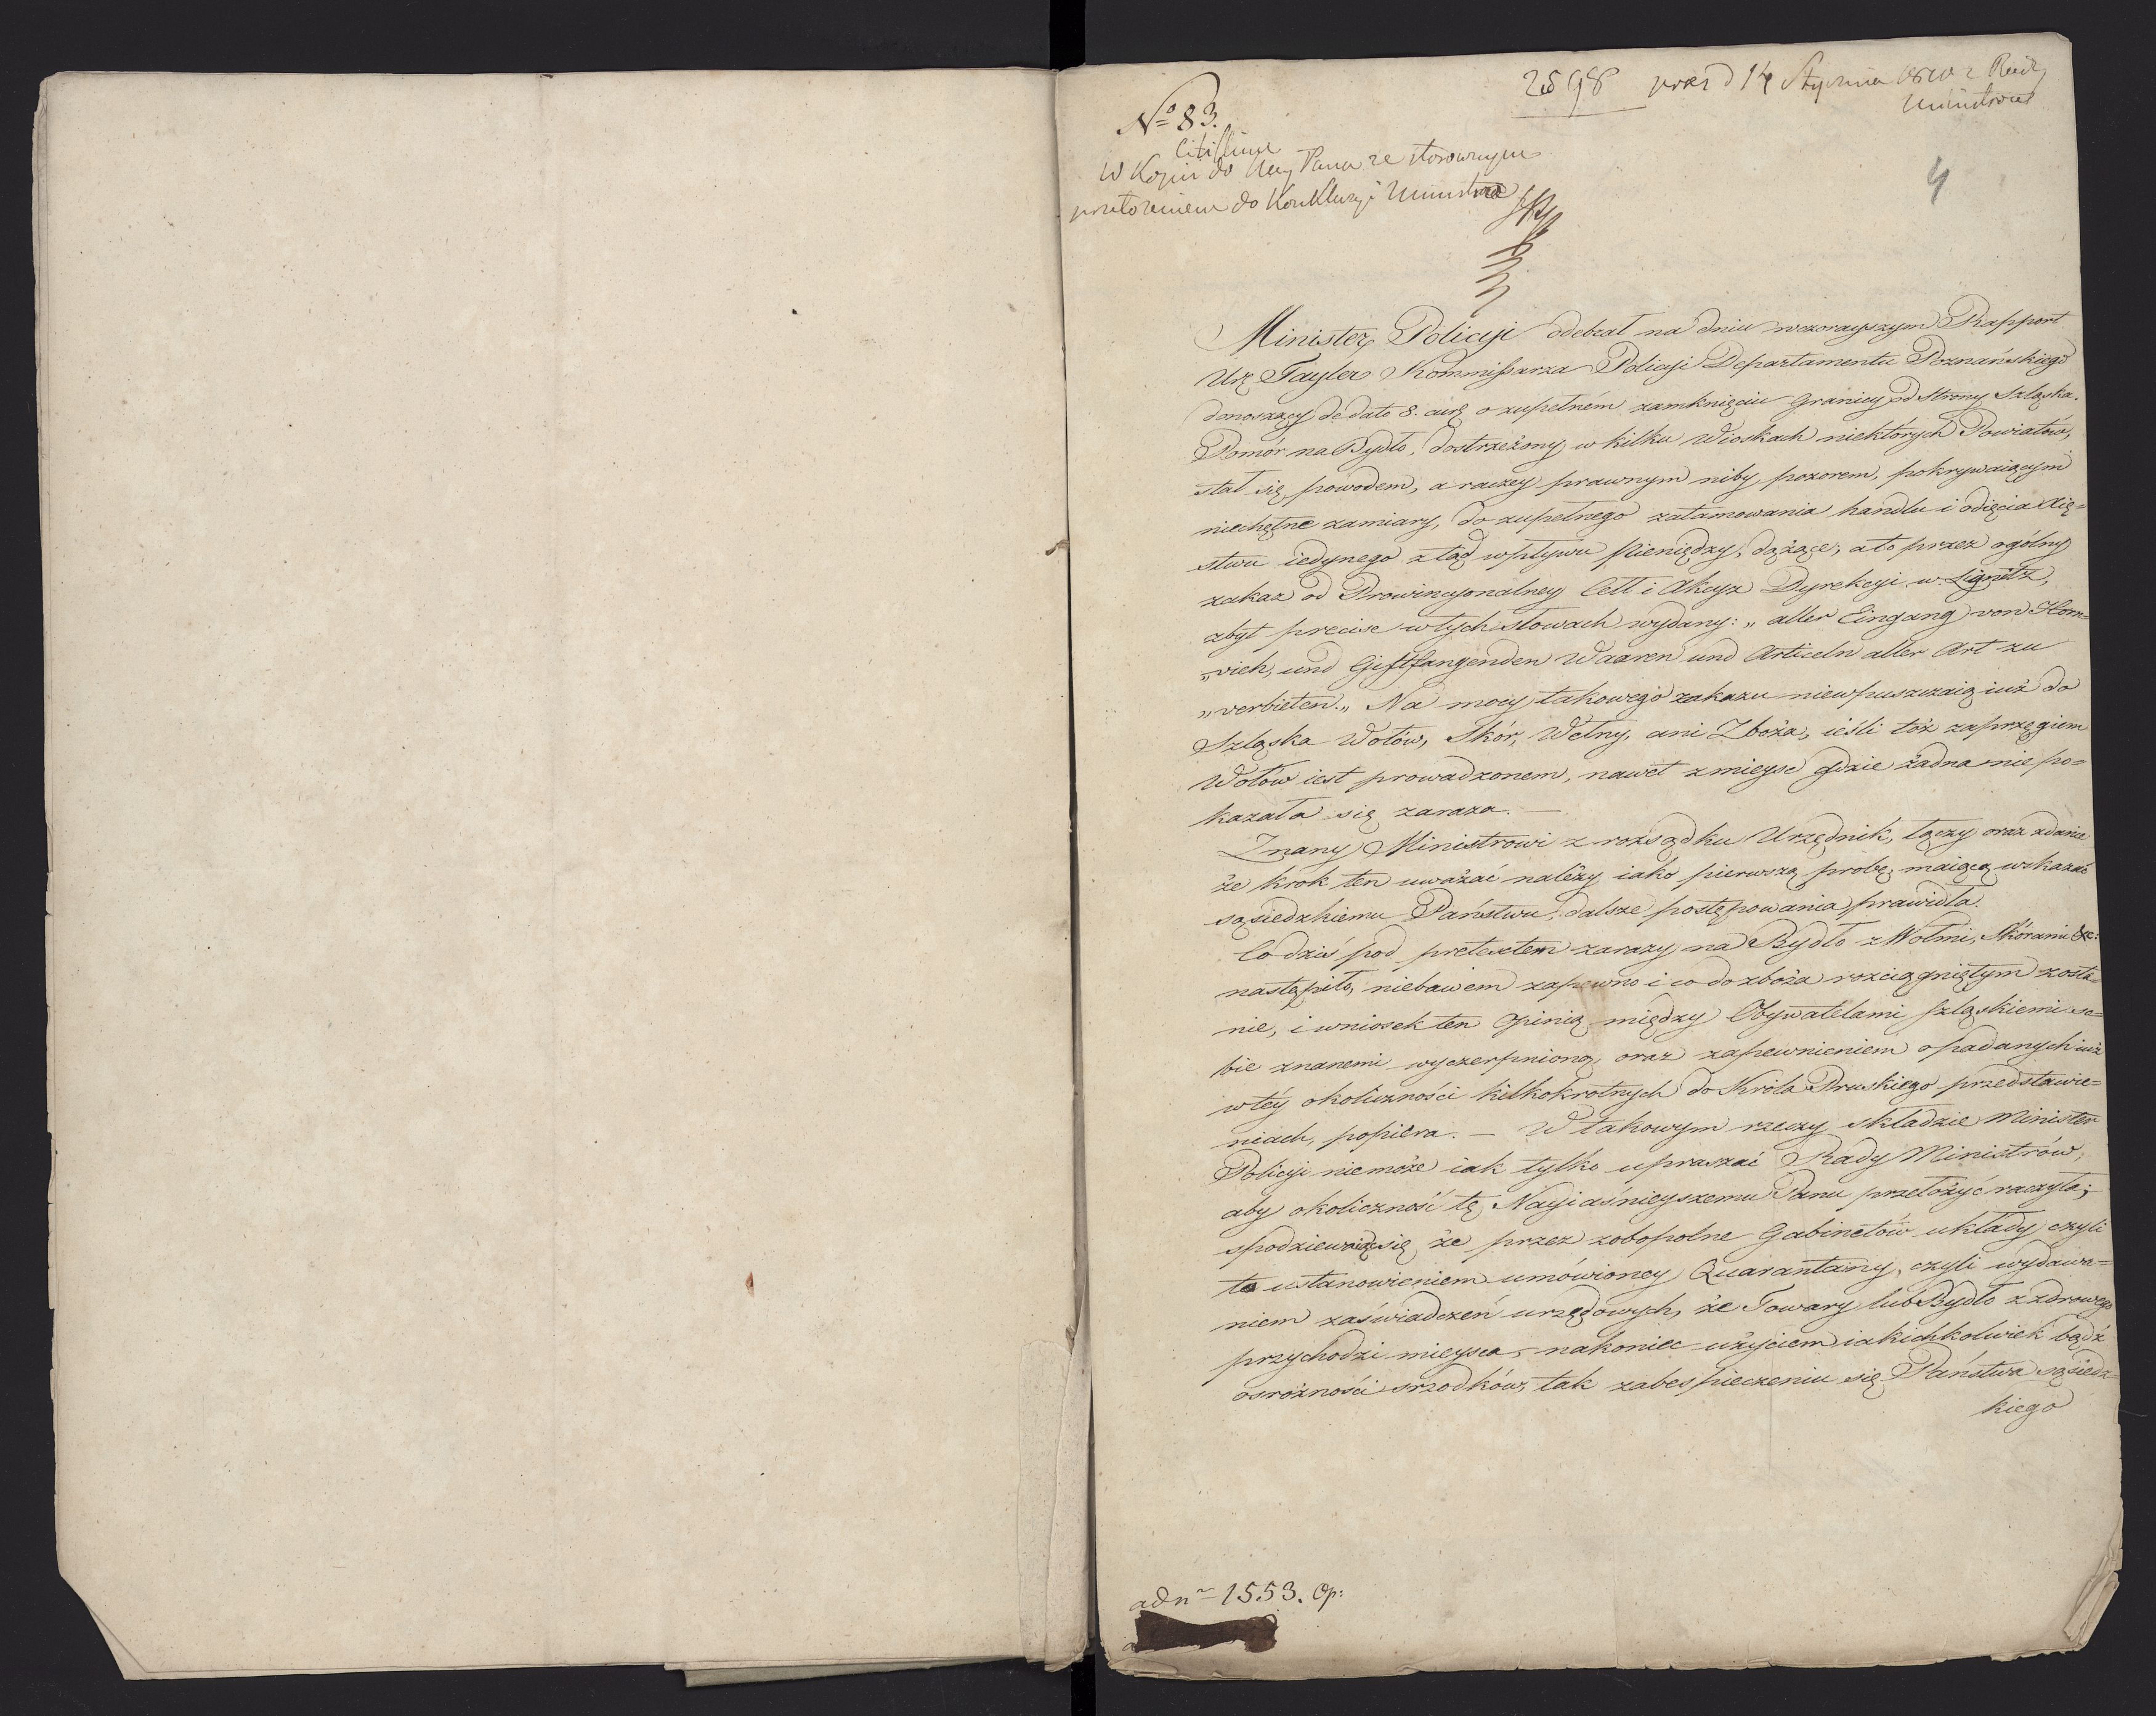 2598 praes d 14 Stycznia 1810 z Rady
Ministrow
4
No 83.
Citissime
W Kopii do Nay Pana ze stosownym
przełożeniem do Konkluzyi Ministra
Minister Policyi odebrał na dniu wczorayszym Rapport
Urz. Taylera Kommissarza Policyi Departamentu Poznańskiego
donoszący de dato 8. curr. o zupełném zamknięciu Granicy od strony Szląska.
Pomór na Bydło, dostrzeżony w kilku Wioskach niektorych Powiatów,
stał się powodem, a raczey prawnym niby pozorem, pokrywaiącym
niechętne zamiary, do zupełnego zatamowania handlu i odięcia Xię=
stwu iedynego ztąd wpływu pieniędzy, dążące, a to przez ogólny
zakaz od Prowincyonalney Cell i Akcyz Dyrekcyi w Lignitz,
zbyt precise w tych słowach wydany: „aller Eingang von Horn=
„vieh, und Giftfangenden Waaren und Articeln aller Art zu
„verbieten.„ Na mocy takowego zakazu niewpuszczaią iuż do
Szląska Wołów, Skór, Wełny, ani Zboża, ieśli tóż zaprzęgiem
Wołów iest prowadzonem, nawet z mieysc gdzie żadna nie po=
kazała się zaraza. —
Znany Ministrowi z rozsądku Urzędnik, łączy oraz zdanie
że krok ten uważać należy iako pierwszą probę, maiącą wskazać
sąsiedzkiemu Państwu, dalsze postępowania prawidła.
Co dziś pod pretextem zarazy na Bydło z Wołmi, Skórami &c:
nastąpiło, niebawem zapewno i co do zboża rozciągniętym zosta=
nie, i wniosek ten Opinią między Obywatelami Szląskiemi so=
bie znanemi wyczerpnioną, oraz zapewnieniem o padanych iuż
w téy okoliczności kilkokrotnych do Króla Pruskiego przedstawie=
niach, popiera. — W takowym rzeczy składzie Minister
Policyi niemoże iak tylko upraszać Rady Ministrów,
aby okoliczność tę Nayiaśnieyszemu Panu przełożyć raczyła;
spodziewaiąc się, że przez zobopolne Gabinetów układy czyli
to ustanowieniem umówioney Quarantany, czyli wydawa=
niem zaświadczeń urzędowych, że Towary lub Bydło z zdrowego
przychodzi mieysca, nakoniec użyciem iakichkolwiek bądź
ostrożności srzodków, tak zabespieczeniu się Państwa sąsiedz=
kiego
ad nr 1553. Op: